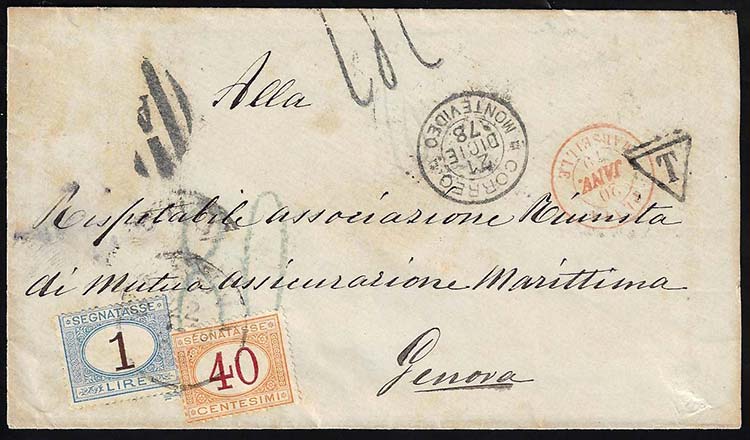 Alla
CORREO
MONTEVIDEO
21
DICIE
78
MARSEILLE
20
JANV.
T
Rispetabile associazione Riunita
di Mutua assicurazione Marittima
Genova
80
SEGNATASSE
1
LIRE
SEGNATASSE
40
CENTESIMI